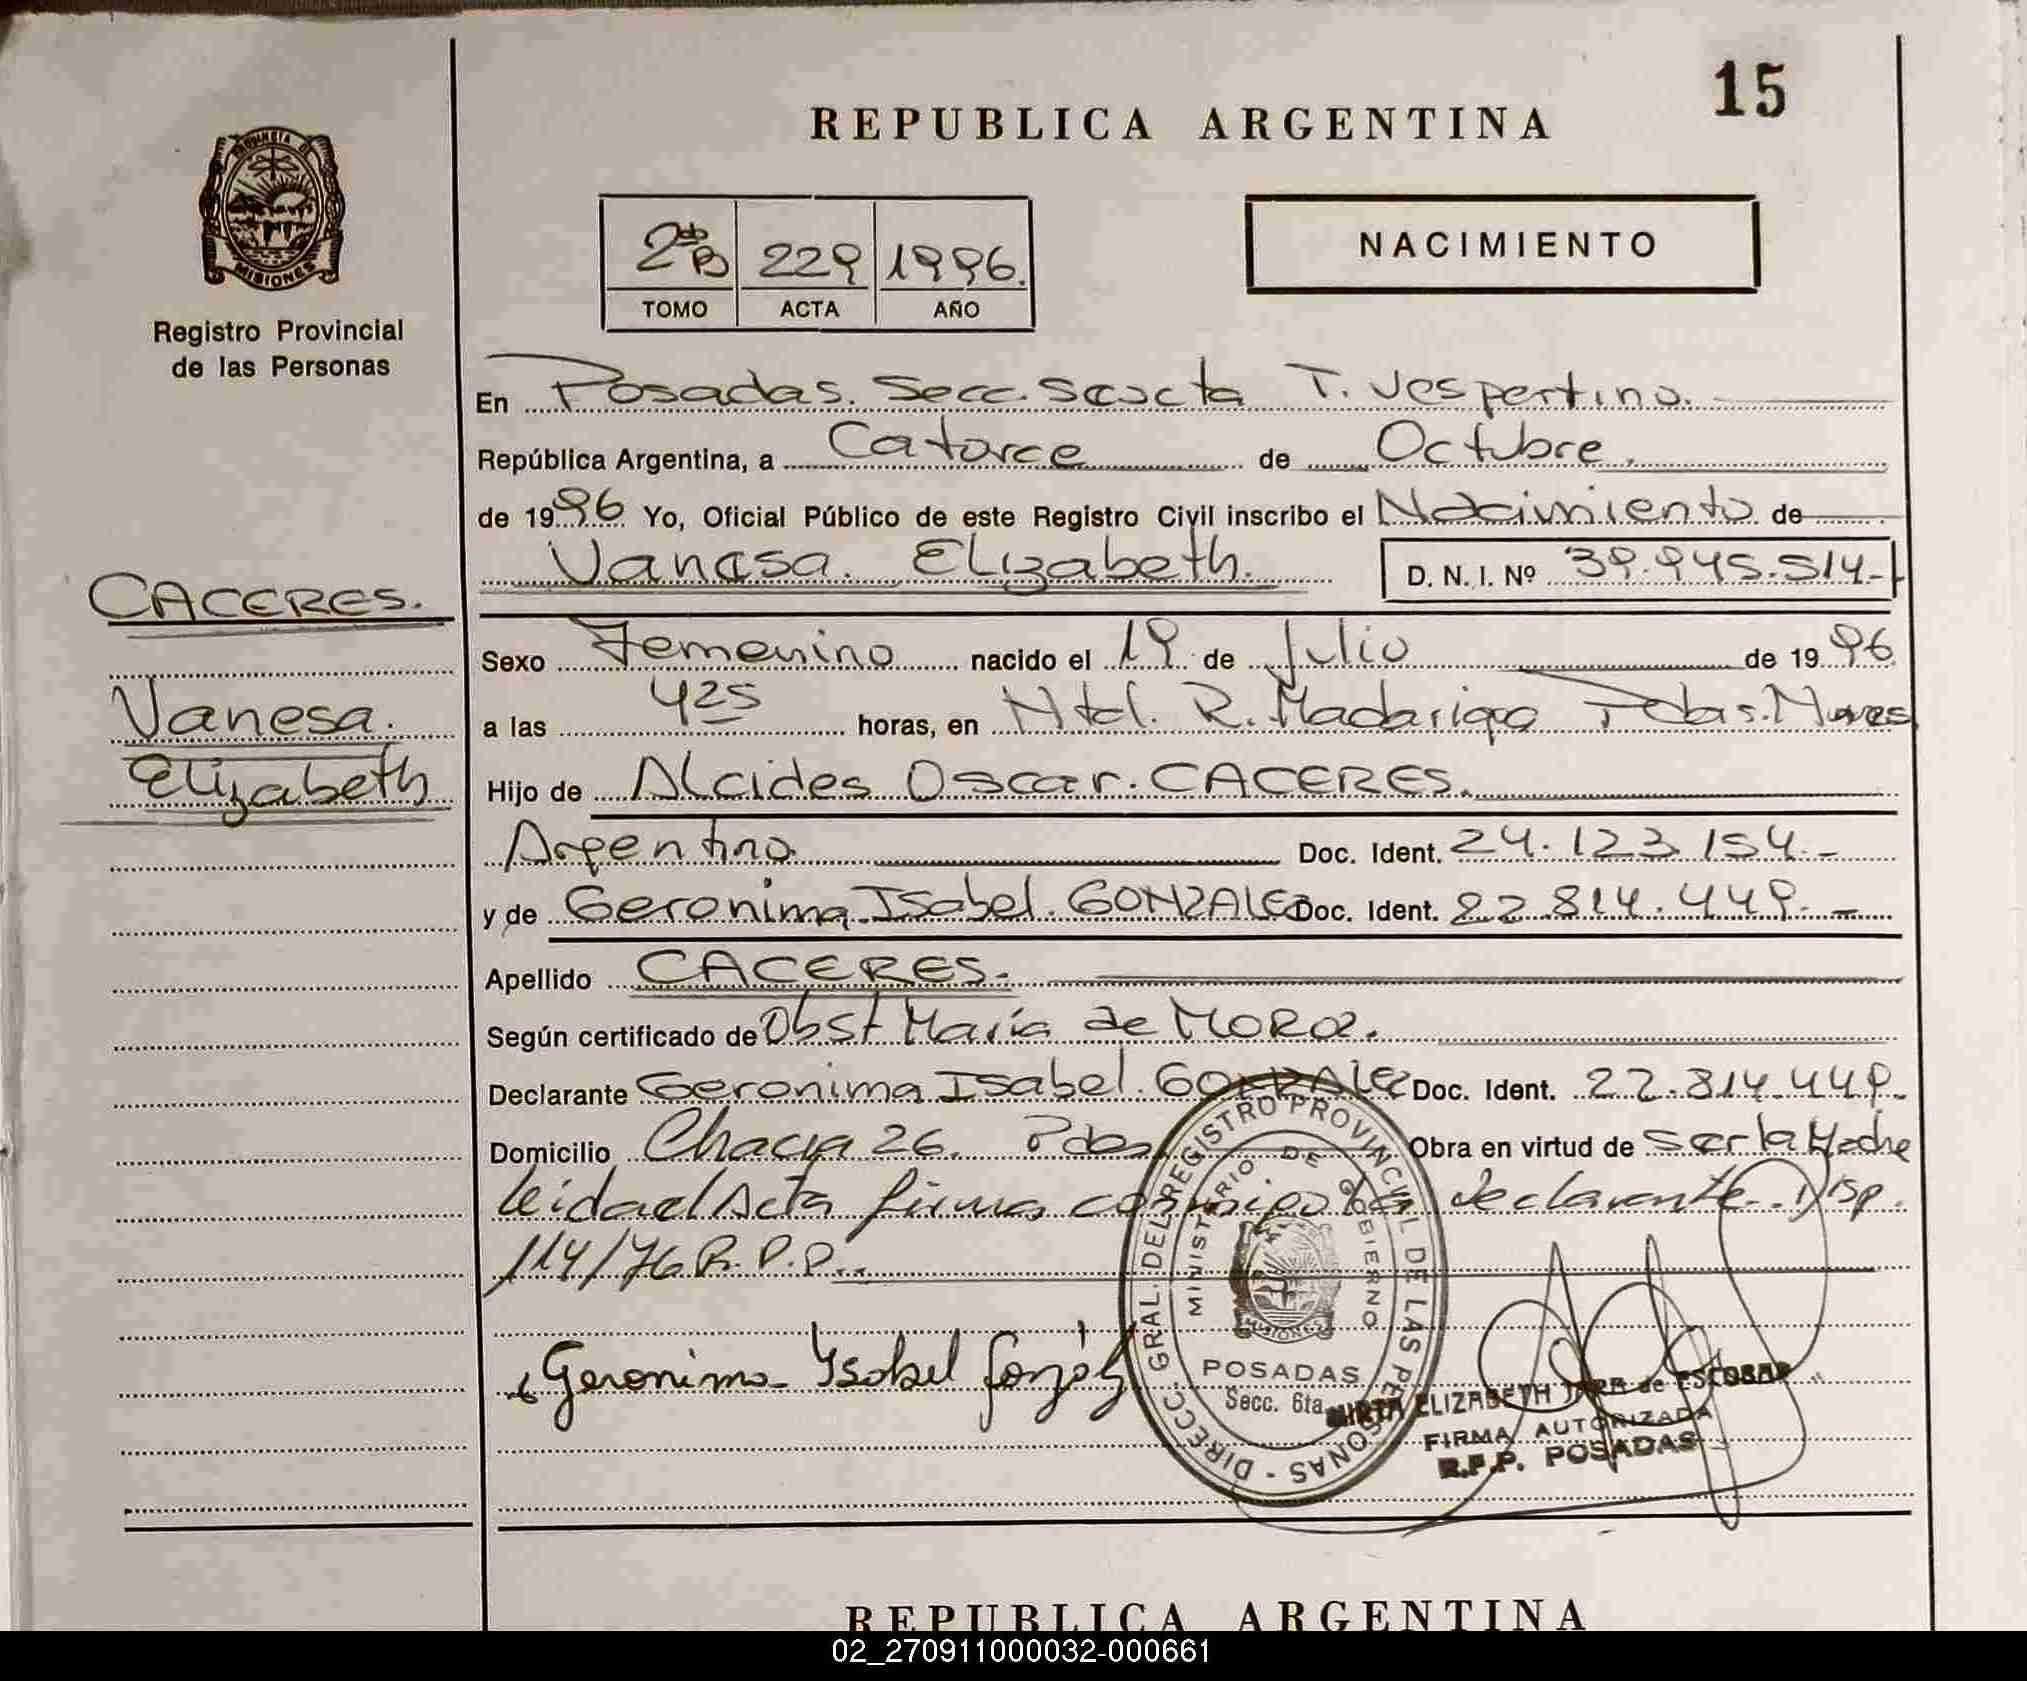 15
REPUBLICA ARGENTINA
PROVINCIA DE
MISIONES
Registro Provincial
de las Personas
2do B 229 1996.
TOMO ACTA AÑO
NACIMIENTO
En Posadas. Secc. Sexta T. Vespertino.
República Argentina, a Catorce de Octubre.
de 1996 Yo, Oficial Público de este Registro Civil inscribo el Nacimiento de
Vanesa. Elizabeth. D. N. I. Nº 39.945.514.-
CACERES.
Vanesa.
Elizabeth
Sexo Femenino nacido el 19 de Julio de 1996
a las 425 horas, en Ntal. R. Madariaga Pdas. Mnes
Hijo de Alcides Oscar. CACERES.
Argentino Doc. Ident. 24.123.154.-
y de Geronima Isabel. GONZALEZ Doc. Ident. 22.814.449.-
Apellido CACERES.
Según certificado de Obst María de MORA.
Declarante Geronima Isabel. GONZALEZ Doc. Ident. 22.814.449.
Domicilio Chacra 26. Pdas Obra en virtud de ser la Madre
leida el Acta firma conmigo la declarante. Disp.
114/76 R.P.P..
Geronima Ysabel Gonzálz
DIRECC. GRAL. DEL REGISTRO PROVINCIAL DE LAS PERSONAS -
MINISTERIO DE GOBIERNO
MISIONES
POSADAS
Secc. 6ta
MIRTA ELIZABETH JARA de ESCOBAR
FIRMA AUTORIZADA
R.P.P. POSADAS
REPUBLICA ARGENTINA
02_270911000032-000661